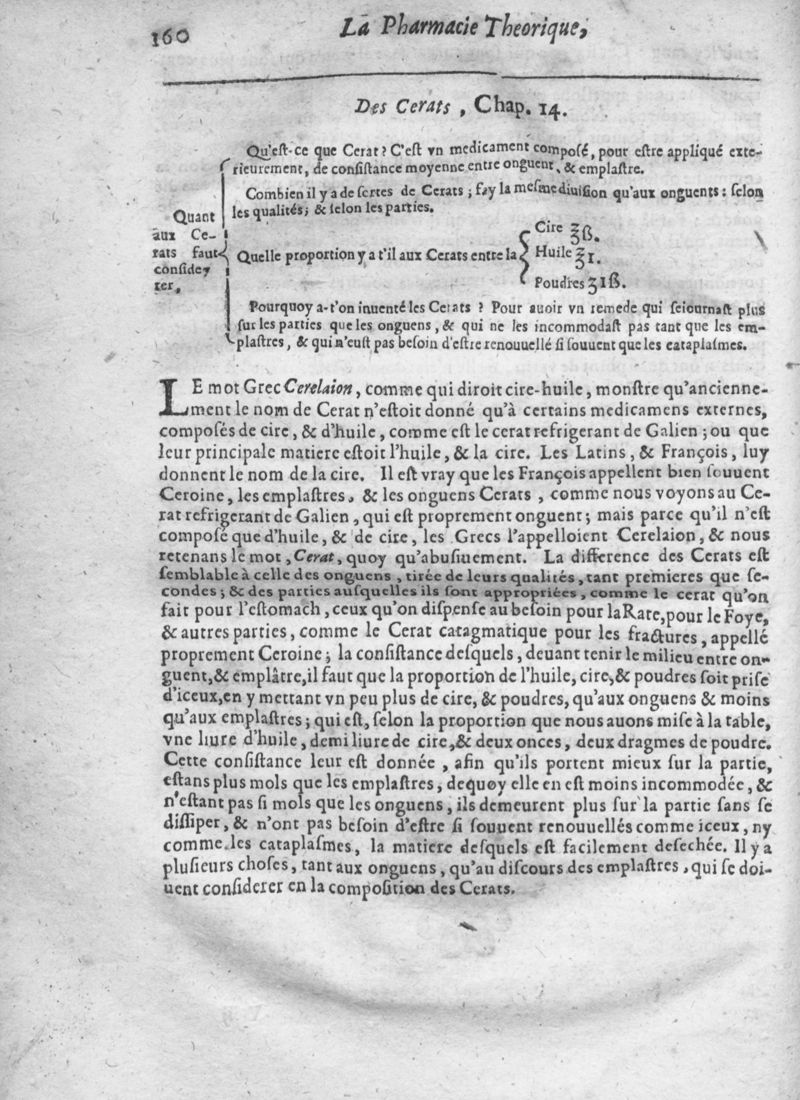 160
La Pharmacie Theorique,
Des Cerats, Chap. 14.
Quant
aux Ce-
rats faut
conside-
rer,
Qu'eſt-ce que Cerat? C'eſt vn medicament compoſé, pour eſtre appliqué exte-
rieurement, de conſiſtance moyenne entre onguent, & emplaſtre.
Combien il y a de ſortes de Cerats; ſay la meſme diuiſion qu'aux onguents: ſelon
les qualités; & ſelon les parties.
Quelle proportion y a t'il aux Cerats entre la
Cire ℥ß.
Huile ℥1.
Poudres ʒ1ß.
Pourquoy a-t'on inuenté les Cerats? Pour auoir vn remede qui ſeiournaſt plus
ſur les parties que les onguens, & qui ne les incommodaſt pas tant que les em-
plaſtres, & qui n'euſt pas beſoin d'eſtre renouuellé ſi ſouuent que les cataplaſmes.
LE mot Grec Cerelaion, comme qui diroit cire-huile, monſtre qu'ancienne-
ment le nom de Cerat n'eſtoit donné qu'à certains medicamens externes,
compoſés de cire, & d'huile, comme eſt le cerat refrigerant de Galien; ou que
leur principale matiere eſtoit l'huile, & la cire. Les Latins, & François, luy
donnent le nom de la cire. Il eſt vray que les François appellent bien ſouuent
Ceroine, les emplaſtres, & les onguens Cerats, comme nous voyons au Ce-
rat refrigerant de Galien, qui eſt proprement onguent; mais parce qu'il n'eſt
compoſé que d'huile, & de cire, les Grecs l'appelloient Cerelaion, & nous
retenans le mot, Cerat, quoy qu'abuſiuement. La difference des Cerats eſt
ſemblable à celle des onguens, tirée de leurs qualités, tant premieres que ſe-
condes; & des parties auſquelles ils ſont appropriées, comme le cerat qu'on
fait pour l'eſtomach, ceux qu'on diſpenſe au beſoin pour la Rate, pour le Foye,
& autres parties, comme le Cerat catagmatique pour les fractures, appellé
proprement Ceroine; la conſiſtance deſquels, deuant tenir le milieu entre on-
guent, & emplâtre, il faut que la proportion de l'huile, cire, & poudres ſoit priſe
d'iceux, en y mettant vn peu plus de cire, & poudres, qu'aux onguens & moins
qu'aux emplaſtres; qui eſt, ſelon la proportion que nous auons miſe à la table,
vne liure d'huile, demi liure de cire, & deux onces, deux dragmes de poudre.
Cette conſiſtance leur eſt donnée, afin qu'ils portent mieux ſur la partie,
eſtans plus mols que les emplaſtres, dequoy elle en eſt moins incommodée, &
n'eſtant pas ſi mols que les onguens, ils demeurent plus ſur la partie ſans ſe
diſſiper, & n'ont pas beſoin d'eſtre ſi ſouuent renouuellés comme iceux, ny
comme les cataplaſmes, la matiere deſquels eſt facilement deſechée. Il y a
pluſieurs choſes, tant aux onguens, qu'au diſcours des emplaſtres, qui ſe doi-
uent conſiderer en la compoſition des Cerats.